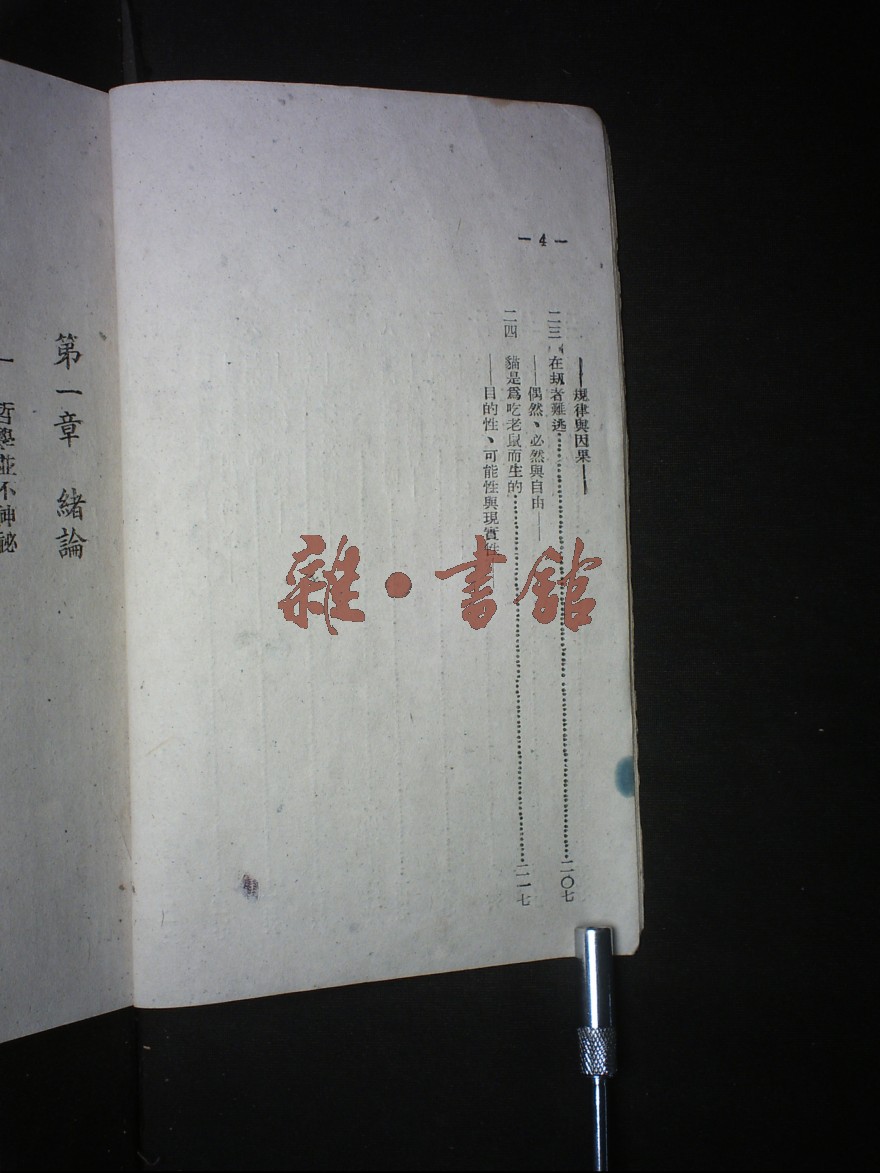 —4—
——規律與因果——
二三 在劫者難逃……二〇七
——偶然、必然與自由——
二四 貓是爲吃老鼠而生的……二一七
——目的性、可能性與現實性——
第一章 緒論
一 哲學並不神祕
雜·書館